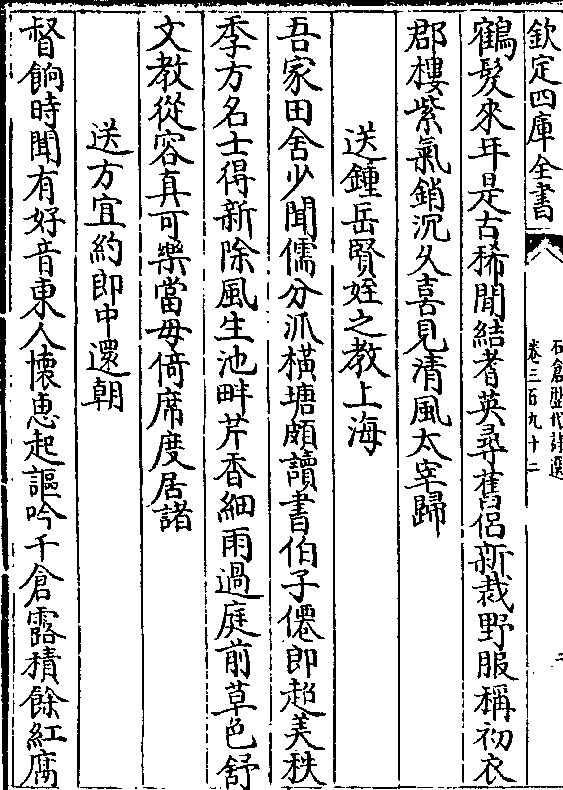 欽定四庫全書
石倉歷代詩選
卷三百九十二
鶴髮來年是古稀閒結耆英尋舊侣新裁野服稱初衣
郡樓紫氣銷沉久喜見清風太宰歸
送鍾岳賢姪之教上海
吾家田舍少聞儒分派橫塘頗讀書伯子僊郎超美秩
季方名士得新除風生池畔芹香細雨過庭前草色舒
文教從容真可樂當毋倚席度居諸
送方宜約郎中還朝
督餉時聞有好音東人懐恵起謳吟千倉露積餘紅腐